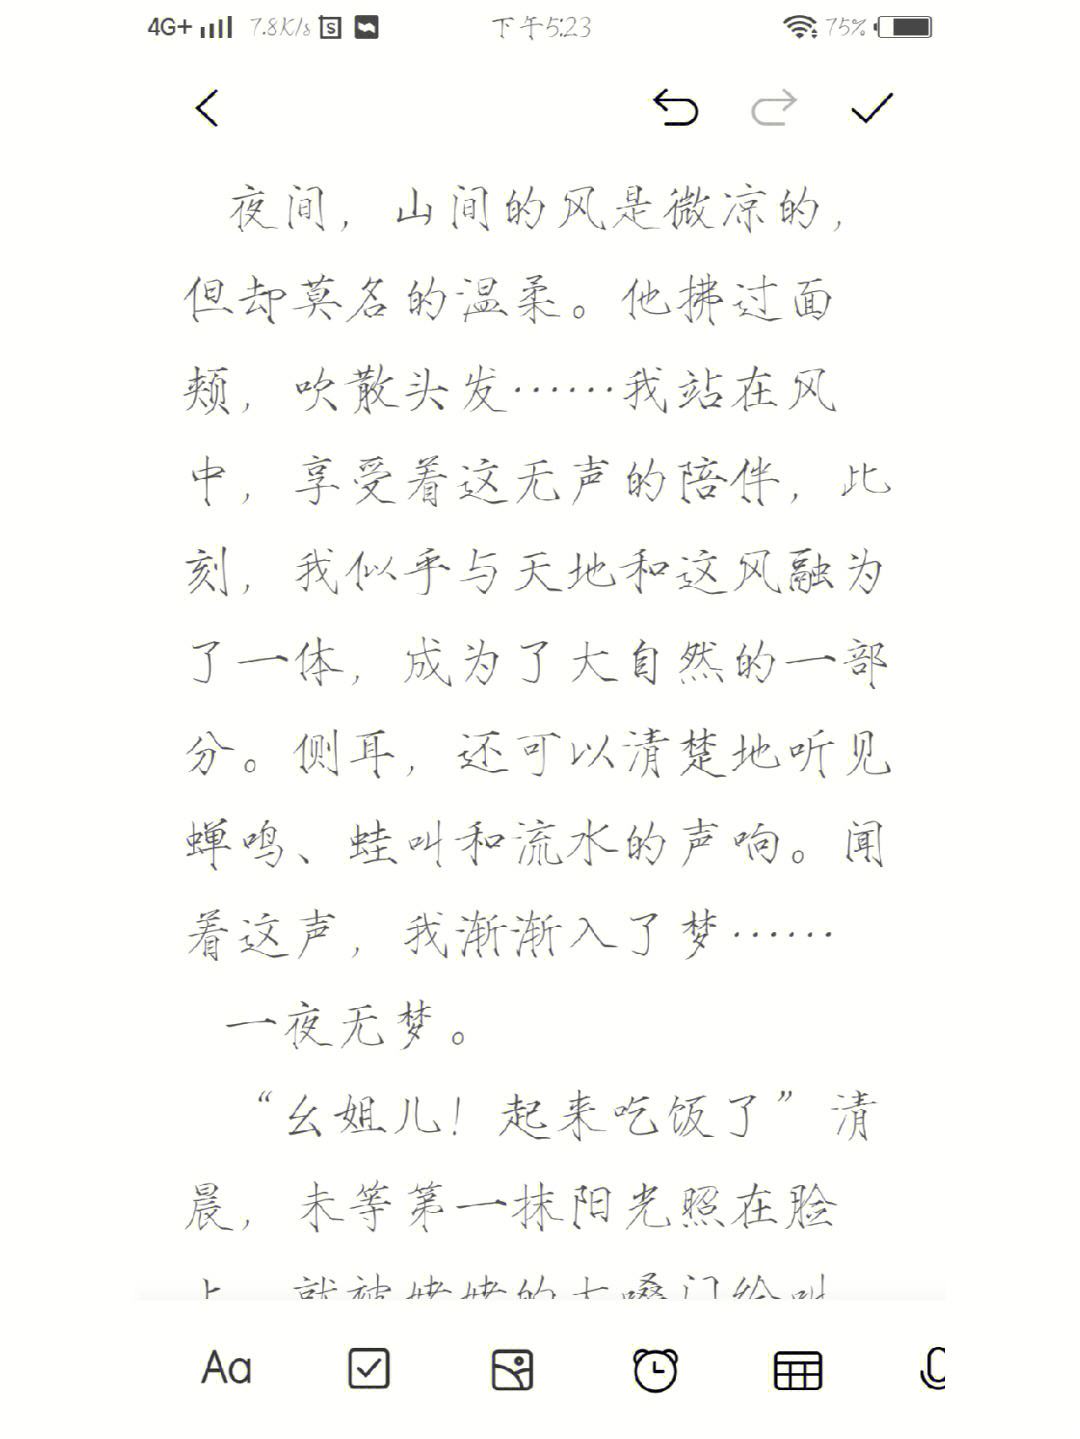 4G+ 7.8K/s 下午5:23 75%
夜间，山间的风是微凉的，
但却莫名的温柔。他拂过面
颊，吹散头发……我站在风
中，享受着这无声的陪伴，此
刻，我似乎与天地和这风融为
了一体，成为了大自然的一部
分。侧耳，还可以清楚地听见
蝉鸣、蛙叫和流水的声响。闻
着这声，我渐渐入了梦……
一夜无梦。
“幺姐儿！起来吃饭了”清
晨，未等第一抹阳光照在脸
上，就被姥姥的大嗓门给叫
Aa